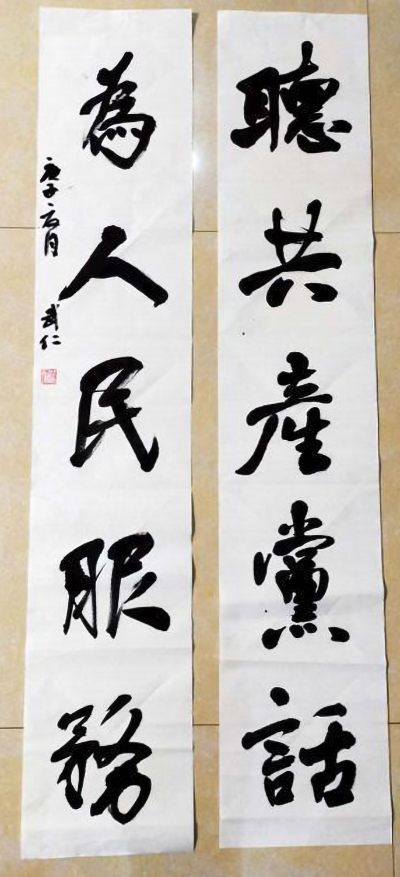 聽共產黨話
為人民服務
庚子六月
武仁